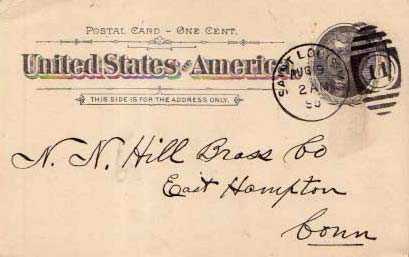 POSTAL CARD - ONE CENT.
United States of America
THIS SIDE IS FOR THE ADDRESS ONLY.
SAINT LOUIS
AUG 9
2 AM
90
11
N. N. Hill Brass Co
East Hampton
Conn